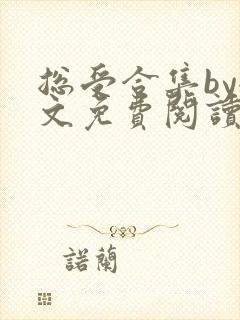 总受合集by
文免費閱讀
諾蘭